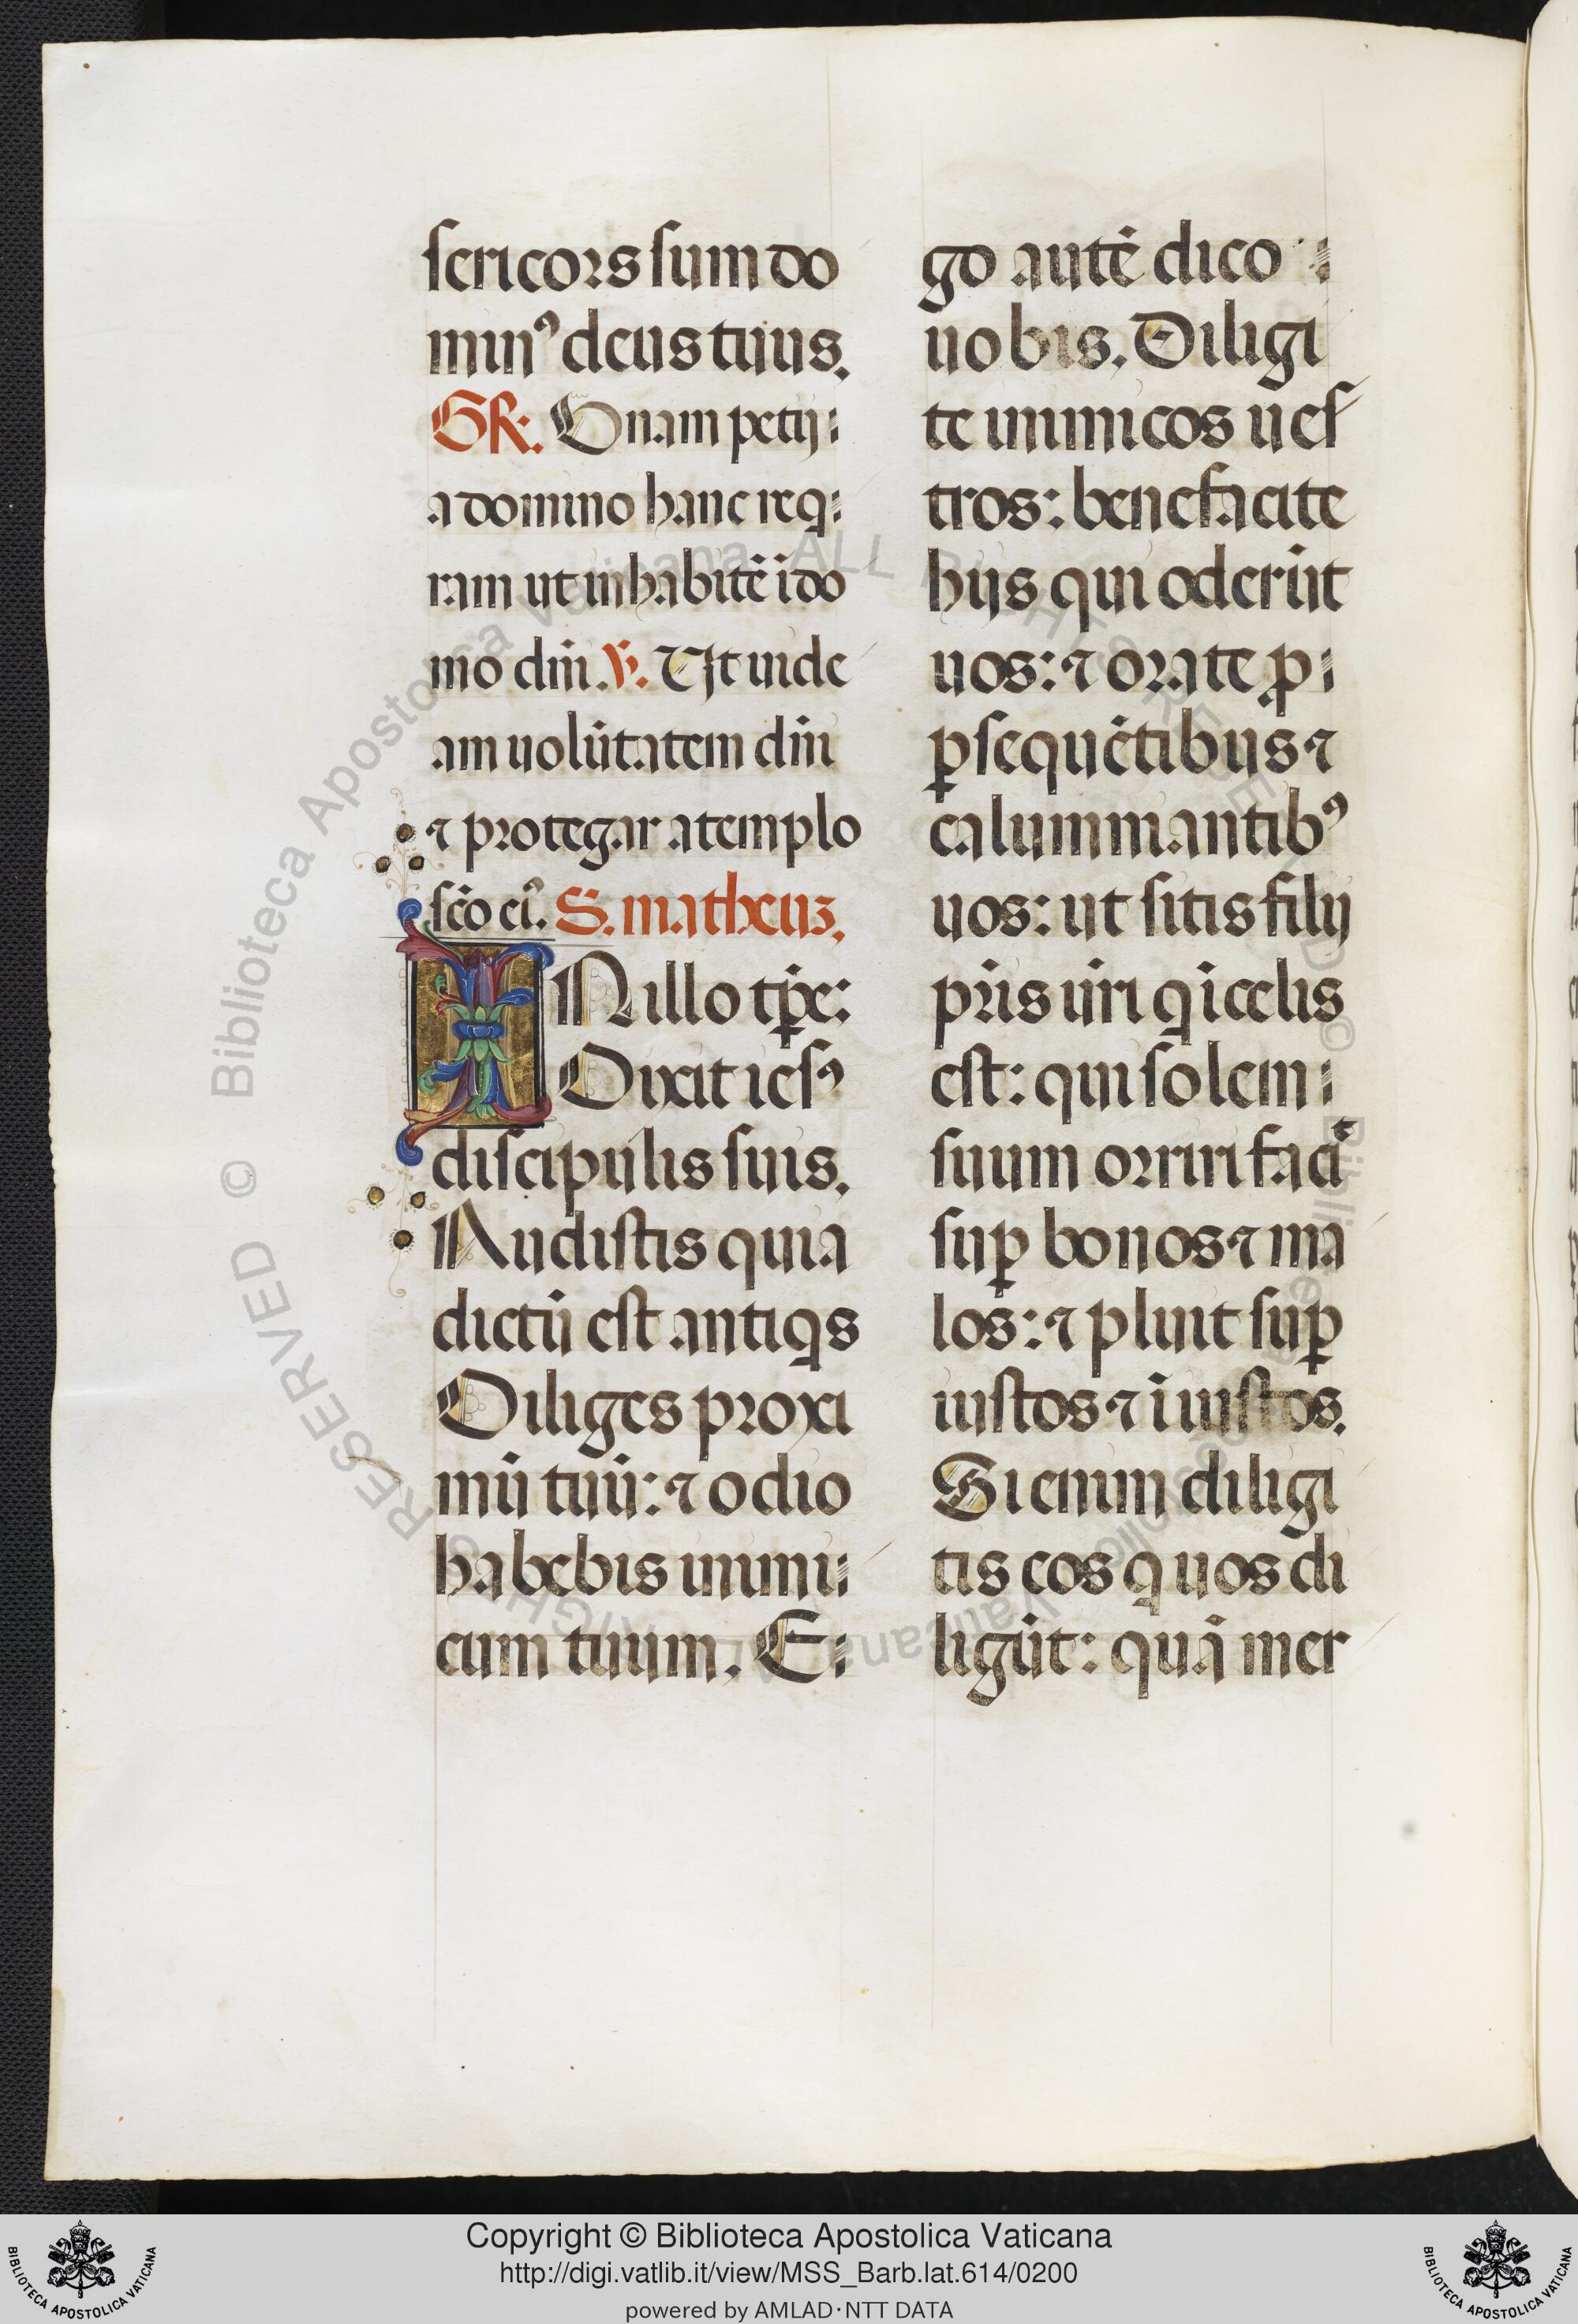 sericors sum do
minꝰ deus tuus.
GR. Unam petij
a domino hanc req
ram ut inhabitē ī do
mo dñi. ꝟ. Ut uide
am uolūtatem dñi
⁊ protegar a templo
sc̄o eiꝰ. S. matheuz.
IN illo tp̄e:
Dixit iesꝰ
discipulis suis.
Audistis quia
dictū est antiqs
Diliges proxi
mū tuū: ⁊ odio
habebis inimi
cum tuum. E
go autē dico
uobis. Diligi
te inimicos ues
tros: benefacite
hijs qui oderūt
uos: ⁊ orate ꝓ
ꝑsequētibus ⁊
calumniantibꝰ
uos: ut sitis filij
pr̄is ur̄i q ī celis
est: qui solem
suum orriri facit
suꝑ bonos ⁊ ma
los: ⁊ pluit suꝑ
iustos ⁊ īiustos.
Si enim diligi
tis eos quos di
ligūt: quā mer
Biblioteca Apostolica Vaticana. ALL RIGHTS RESERVED ©
Copyright © Biblioteca Apostolica Vaticana
http://digi.vatlib.it/view/MSS_Barb.lat.614/0200
powered by AMLAD·NTT DATA
BIBLIOTECA APOSTOLICA VATICANA
BIBLIOTECA APOSTOLICA VATICANA